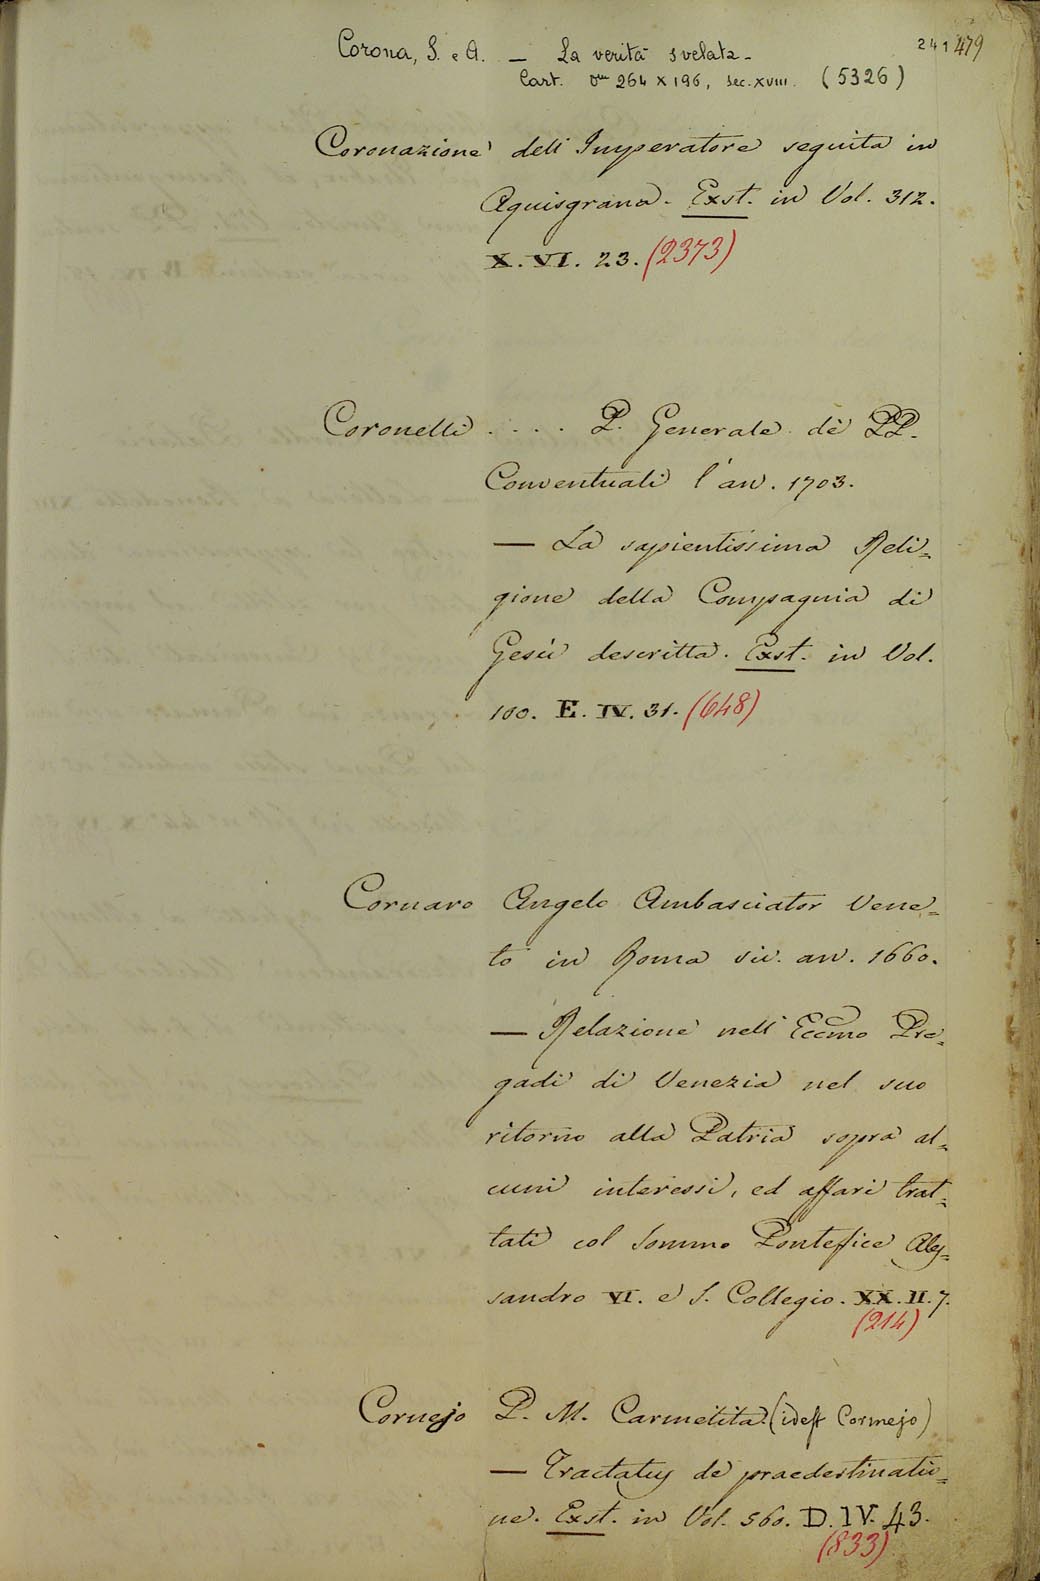 241 479
Corona, S. e A. — La verità svelata -
Cart. 0m 264 x 196, sec. XVIII. (5326)
Coronazione dell'Imperatore seguita in
Aquisgrana. Exst. in Vol. 312.
X. VI. 23. (2373)
Coronelli .... P. Generale de PP.
Conventuali l'an. 1703.
— La sapientissima Reli=
gione della Compagnia di
Gesù descritta. Exst. in Vol.
100. E. IV. 31. (648)
Cornaro Angelo Ambasciator Vene=
to in Roma sic. an. 1660.
— Relazione nell'Eccmo Pre=
gadi di Venezia nel suo
ritorno alla Patria sopra al=
cuni interessi, ed affari trat=
tati col Sommo Pontefice Ales=
sandro VI. e S. Collegio. XX. II. 7.
(214)
Cornejo P. M. Carmelita. (idest Cormejo)
— Tractatus de praedestinatio=
ne. Exst. in Vol. 560. D. IV. 43.
(833)